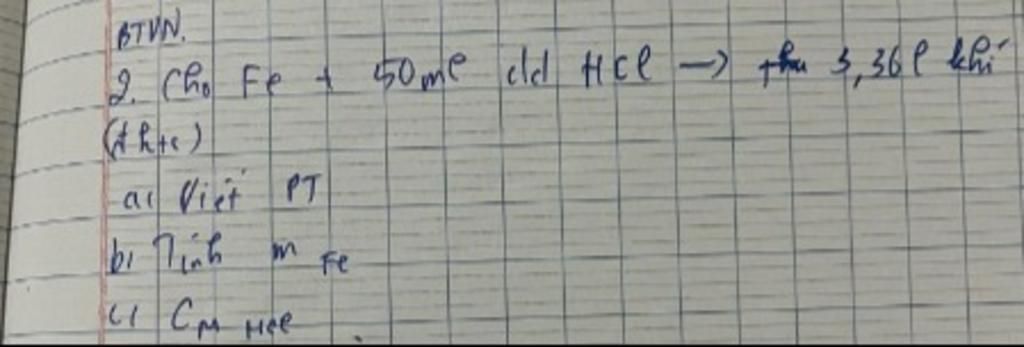 BTVN.
2. Cho Fe + 50ml dd HCl → thu 3,36l khí
(đktc)
a) Viết PT
b) Tính m Fe
c) CM HCl